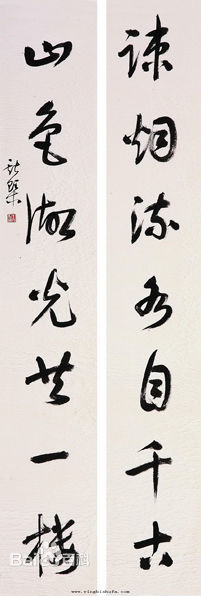 踈烟流水自千古
山色湖光共一樓
Baidu百科
www.yingbishufa.com